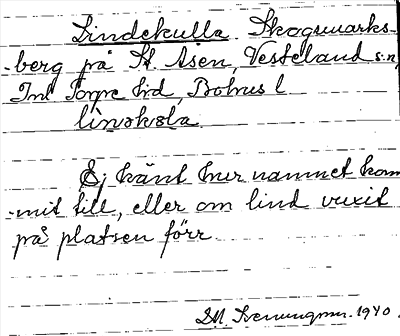 Lindekulla. Skogsmarks-
-berg på St. Åsen, Vesteland s:n,
Inl Torpe hd, Bohus l
lin⟨ə⟩kəla
Ej känt hur namnet kom
-mit till, eller om lind vuxit
på platsen förr
1940.